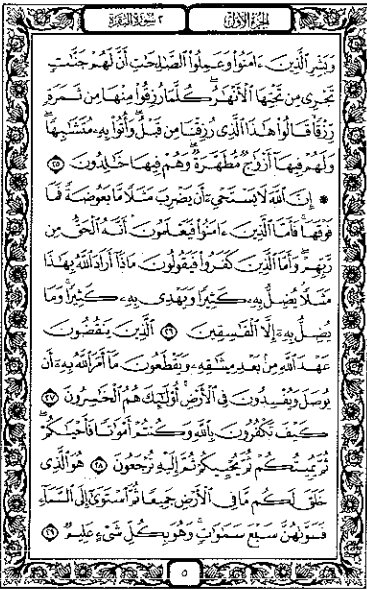 الجزء الأول
٢ سورة البقرة
وَبَشِّرِ ٱلَّذِينَ ءَامَنُوا۟ وَعَمِلُوا۟ ٱلصَّٰلِحَٰتِ أَنَّ لَهُمْ جَنَّٰتٍ
تَجْرِى مِن تَحْتِهَا ٱلْأَنْهَٰرُ ۖ كُلَّمَا رُزِقُوا۟ مِنْهَا مِن ثَمَرَةٍ
رِّزْقًا ۙ قَالُوا۟ هَٰذَا ٱلَّذِى رُزِقْنَا مِن قَبْلُ ۖ وَأُتُوا۟ بِهِۦ مُتَشَٰبِهًا ۖ
وَلَهُمْ فِيهَآ أَزْوَٰجٌ مُّطَهَّرَةٌ ۖ وَهُمْ فِيهَا خَٰلِدُونَ ٢٥
* إِنَّ ٱللَّهَ لَا يَسْتَحْىِۦٓ أَن يَضْرِبَ مَثَلًا مَّا بَعُوضَةً فَمَا
فَوْقَهَا ۚ فَأَمَّا ٱلَّذِينَ ءَامَنُوا۟ فَيَعْلَمُونَ أَنَّهُ ٱلْحَقُّ مِن
رَّبِّهِمْ ۖ وَأَمَّا ٱلَّذِينَ كَفَرُوا۟ فَيَقُولُونَ مَاذَآ أَرَادَ ٱللَّهُ بِهَٰذَا
مَثَلًا ۘ يُضِلُّ بِهِۦ كَثِيرًا وَيَهْدِى بِهِۦ كَثِيرًا ۚ وَمَا
يُضِلُّ بِهِۦٓ إِلَّا ٱلْفَٰسِقِينَ ٢٦ ٱلَّذِينَ يَنقُضُونَ
عَهْدَ ٱللَّهِ مِنۢ بَعْدِ مِيثَٰقِهِۦ وَيَقْطَعُونَ مَآ أَمَرَ ٱللَّهُ بِهِۦٓ أَن
يُوصَلَ وَيُفْسِدُونَ فِى ٱلْأَرْضِ ۚ أُو۟لَٰٓئِكَ هُمُ ٱلْخَٰسِرُونَ ٢٧
كَيْفَ تَكْفُرُونَ بِٱللَّهِ وَكُنتُمْ أَمْوَٰتًا فَأَحْيَٰكُمْ ۖ
ثُمَّ يُمِيتُكُمْ ثُمَّ يُحْيِيكُمْ ثُمَّ إِلَيْهِ تُرْجَعُونَ ٢٨ هُوَ ٱلَّذِى
خَلَقَ لَكُم مَّا فِى ٱلْأَرْضِ جَمِيعًا ثُمَّ ٱسْتَوَىٰٓ إِلَى ٱلسَّمَآءِ
فَسَوَّىٰهُنَّ سَبْعَ سَمَٰوَٰتٍ ۚ وَهُوَ بِكُلِّ شَىْءٍ عَلِيمٌ ٢٩
٥